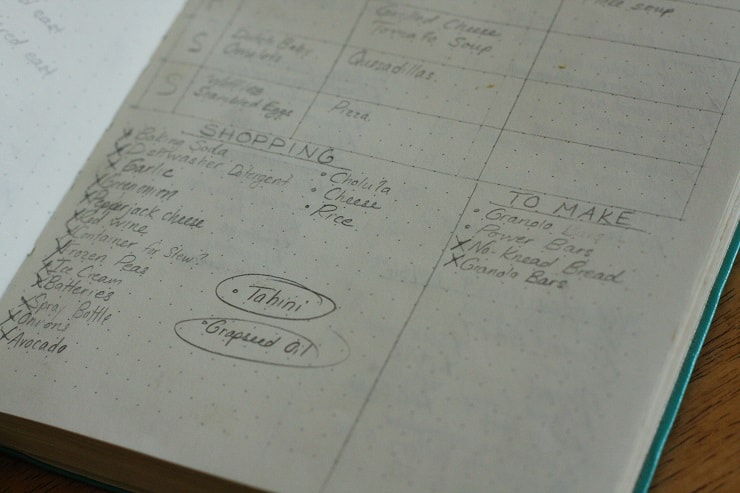 Grilled Cheese
Tomato Soup
soup
S
Dutch Baby
Omelets
Quesadillas
S
Scrambled Eggs
Pizza
SHOPPING
x Baking Soda
x Dishwasher Detergent
x Garlic
x Pepperjack cheese
x Red wine
x Container for Stew?
x Frozen Peas
x Ice Cream
x Batteries
x Spray Bottle
x Onions
x Avocado
• Cholula
• Cheese
• Rice
• Tahini
• Grapseed Oil
TO MAKE
• Granola
• Power Bars
x No-Knead Bread
x Granola Bars